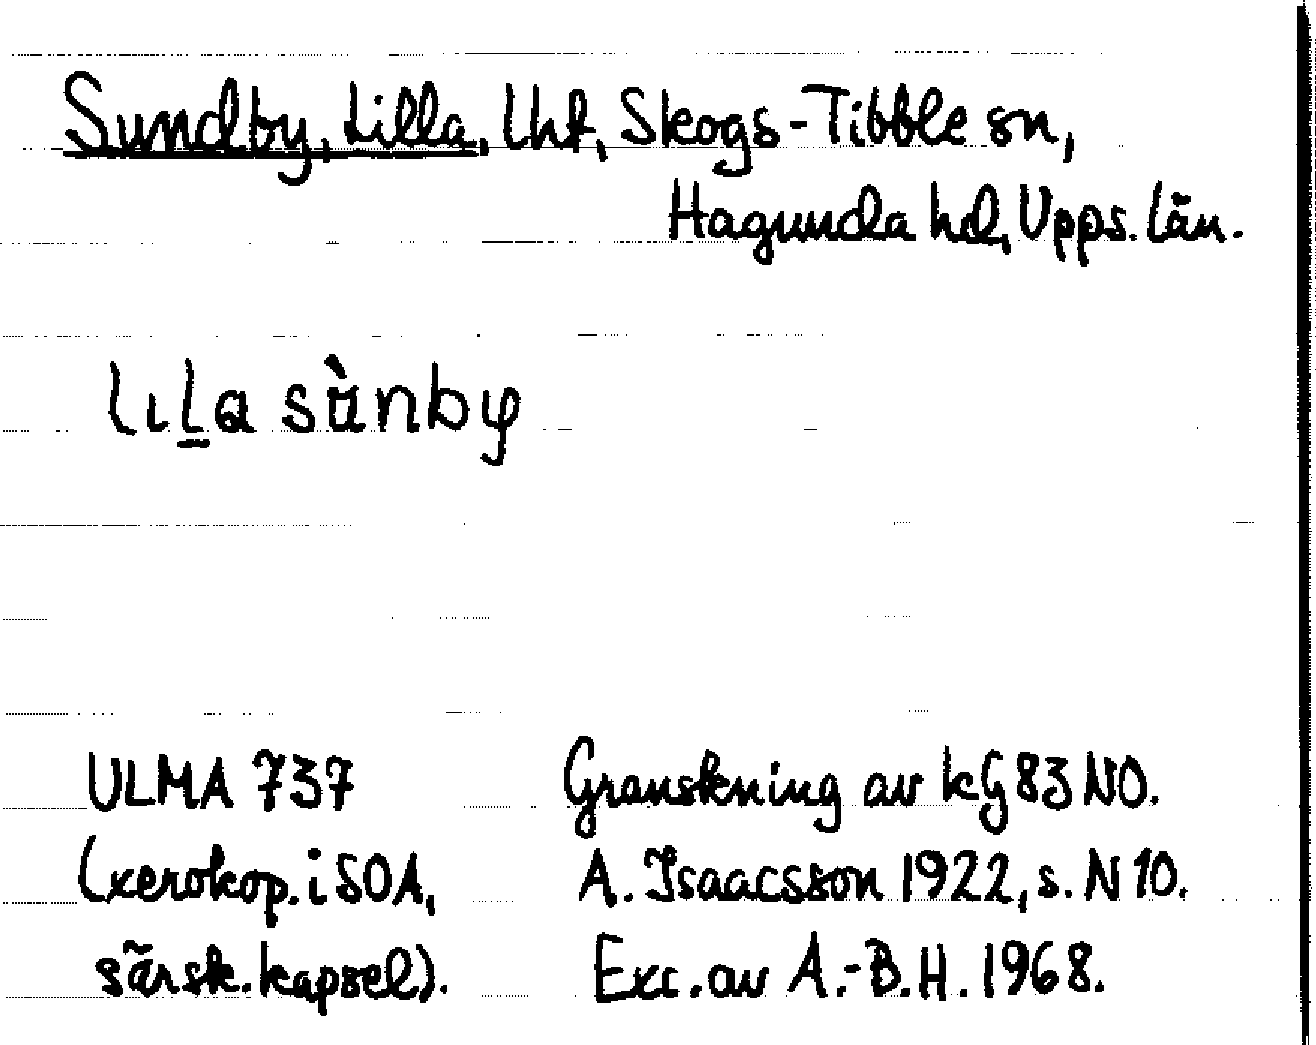 Sundby, Lilla, Lht, Skogs-Tibble sn,
Hagunda hd, Upps. län.
lıl̲a sùnby
ULMA 737
(xerokop. i SOA,
särsk. kapsel).
Granskning av kG 83 NO.
A. Isaacsson 1922, s. N 10.
Exc. av A.-B.H. 1968.